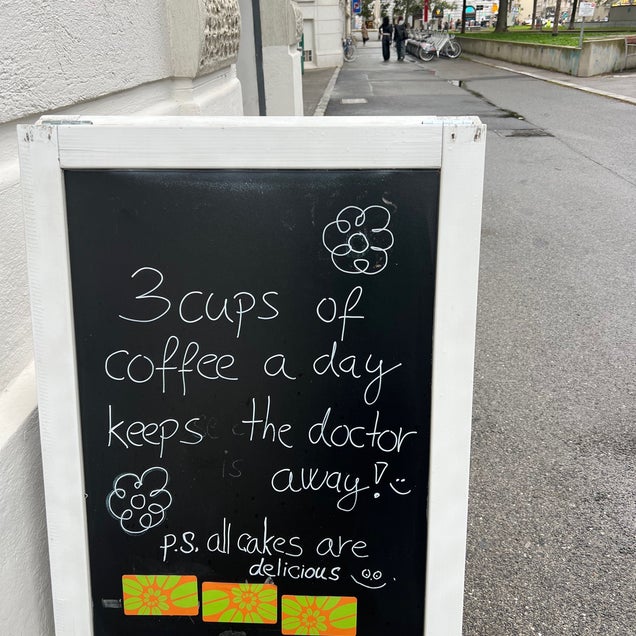 3 cups of
coffee a day
keeps the doctor
away!
p.s. all cakes are
delicious